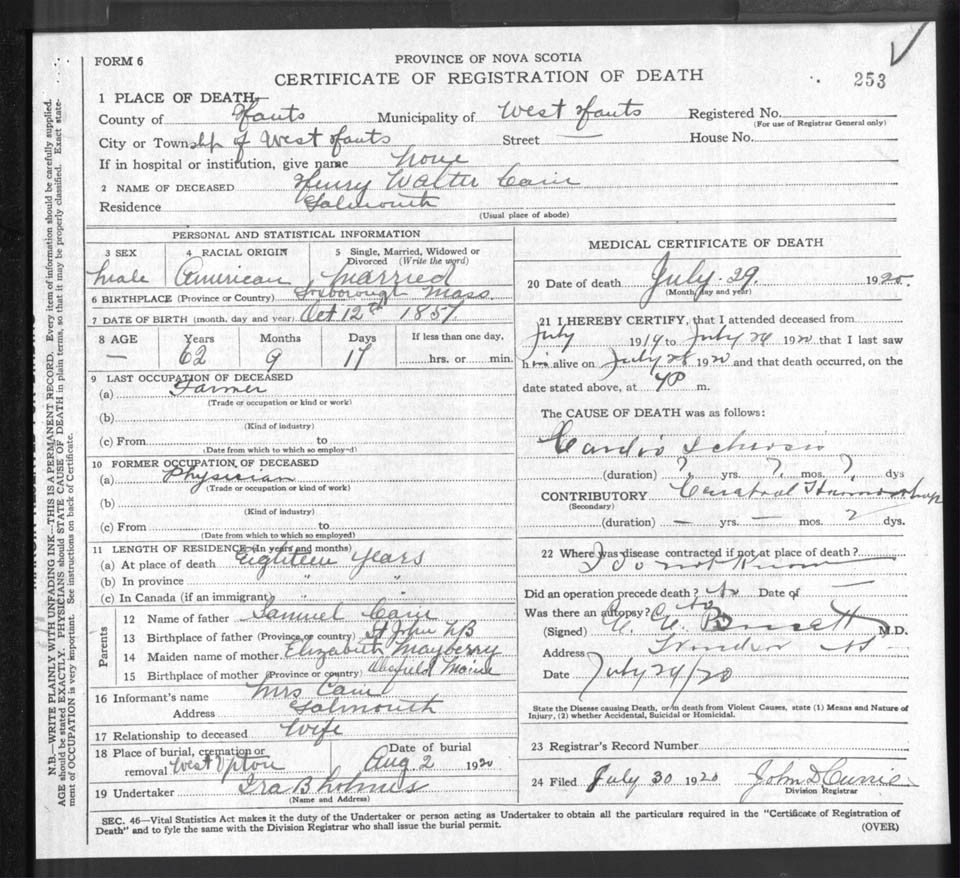 FORM 6
PROVINCE OF NOVA SCOTIA
CERTIFICATE OF REGISTRATION OF DEATH
253
1 PLACE OF DEATH
County of Hants Municipality of West Hants Registered No.
(For use of Registrar General only)
City or Township of West Hants Street — House No.
If in hospital or institution, give name None
2 NAME OF DECEASED Henry Walter Cain
Residence Falmouth
(Usual place of abode)
PERSONAL AND STATISTICAL INFORMATION
3 SEX 4 RACIAL ORIGIN 5 Single, Married, Widowed or Divorced (Write the word)
Male American Married
6 BIRTHPLACE (Province or Country) Mass.
7 DATE OF BIRTH (month, day and year) Oct 12th 1857
8 AGE Years Months Days If less than one day,
— 62 9 17 hrs. or min.
9 LAST OCCUPATION OF DECEASED
(a) Farmer
(Trade or occupation or kind or work)
(b)
(Kind of industry)
(c) From to
(Date from which to which so employed)
10 FORMER OCCUPATION OF DECEASED
(a) Physician
(Trade or occupation or kind of work)
(b)
(Kind of industry)
(c) From to
(Date from which to which so employed)
11 LENGTH OF RESIDENCE (In years and months)
(a) At place of death Eighteen years
(b) In province " "
(c) In Canada (if an immigrant) " "
Parents
12 Name of father Samuel Cain
13 Birthplace of father (Province or country) St John NB
14 Maiden name of mother Elizabeth Mayberry
15 Birthplace of mother (Province or country) Maine
16 Informant's name Mrs Cain
Address Falmouth
17 Relationship to deceased Wife
18 Place of burial, cremation or removal West Upton Date of burial Aug 2 1920
19 Undertaker Ira B Holmes
(Name and Address)
MEDICAL CERTIFICATE OF DEATH
20 Date of death July 29. 1920.
(Month, day and year)
21 I HEREBY CERTIFY, that I attended deceased from
July 1919 to July 29 1920 that I last saw
him alive on July 28 1920 and that death occurred, on the
date stated above, at 4 P m.
The CAUSE OF DEATH was as follows:
Cardio
(duration) ? yrs. ? mos. ? dys
CONTRIBUTORY Cerebral
(Secondary)
(duration) — yrs. — mos. ? dys.
22 Where was disease contracted if not at place of death?
I do not know
Did an operation precede death? No Date of —
Was there an autopsy? No
(Signed) M.D.
Address Windsor NS
Date July 29/20
State the Disease causing Death, or in death from Violent Causes, state (1) Means and Nature of
Injury, (2) whether Accidental, Suicidal or Homicidal.
23 Registrar's Record Number
24 Filed July 30 1920 John D Currie
Division Registrar
SEC. 46—Vital Statistics Act makes it the duty of the Undertaker or person acting as Undertaker to obtain all the particulars required in the "Certificate of Registration of
Death" and to fyle the same with the Division Registrar who shall issue the burial permit. (OVER)
N.B.—WRITE PLAINLY WITH UNFADING INK—THIS IS A PERMANENT RECORD. Every item of information should be carefully supplied.
AGE should be stated EXACTLY. PHYSICIANS should STATE CAUSE OF DEATH in plain terms, so that it may be properly classified. Exact state-
ment of OCCUPATION is very important. See instructions on back of Certificate.